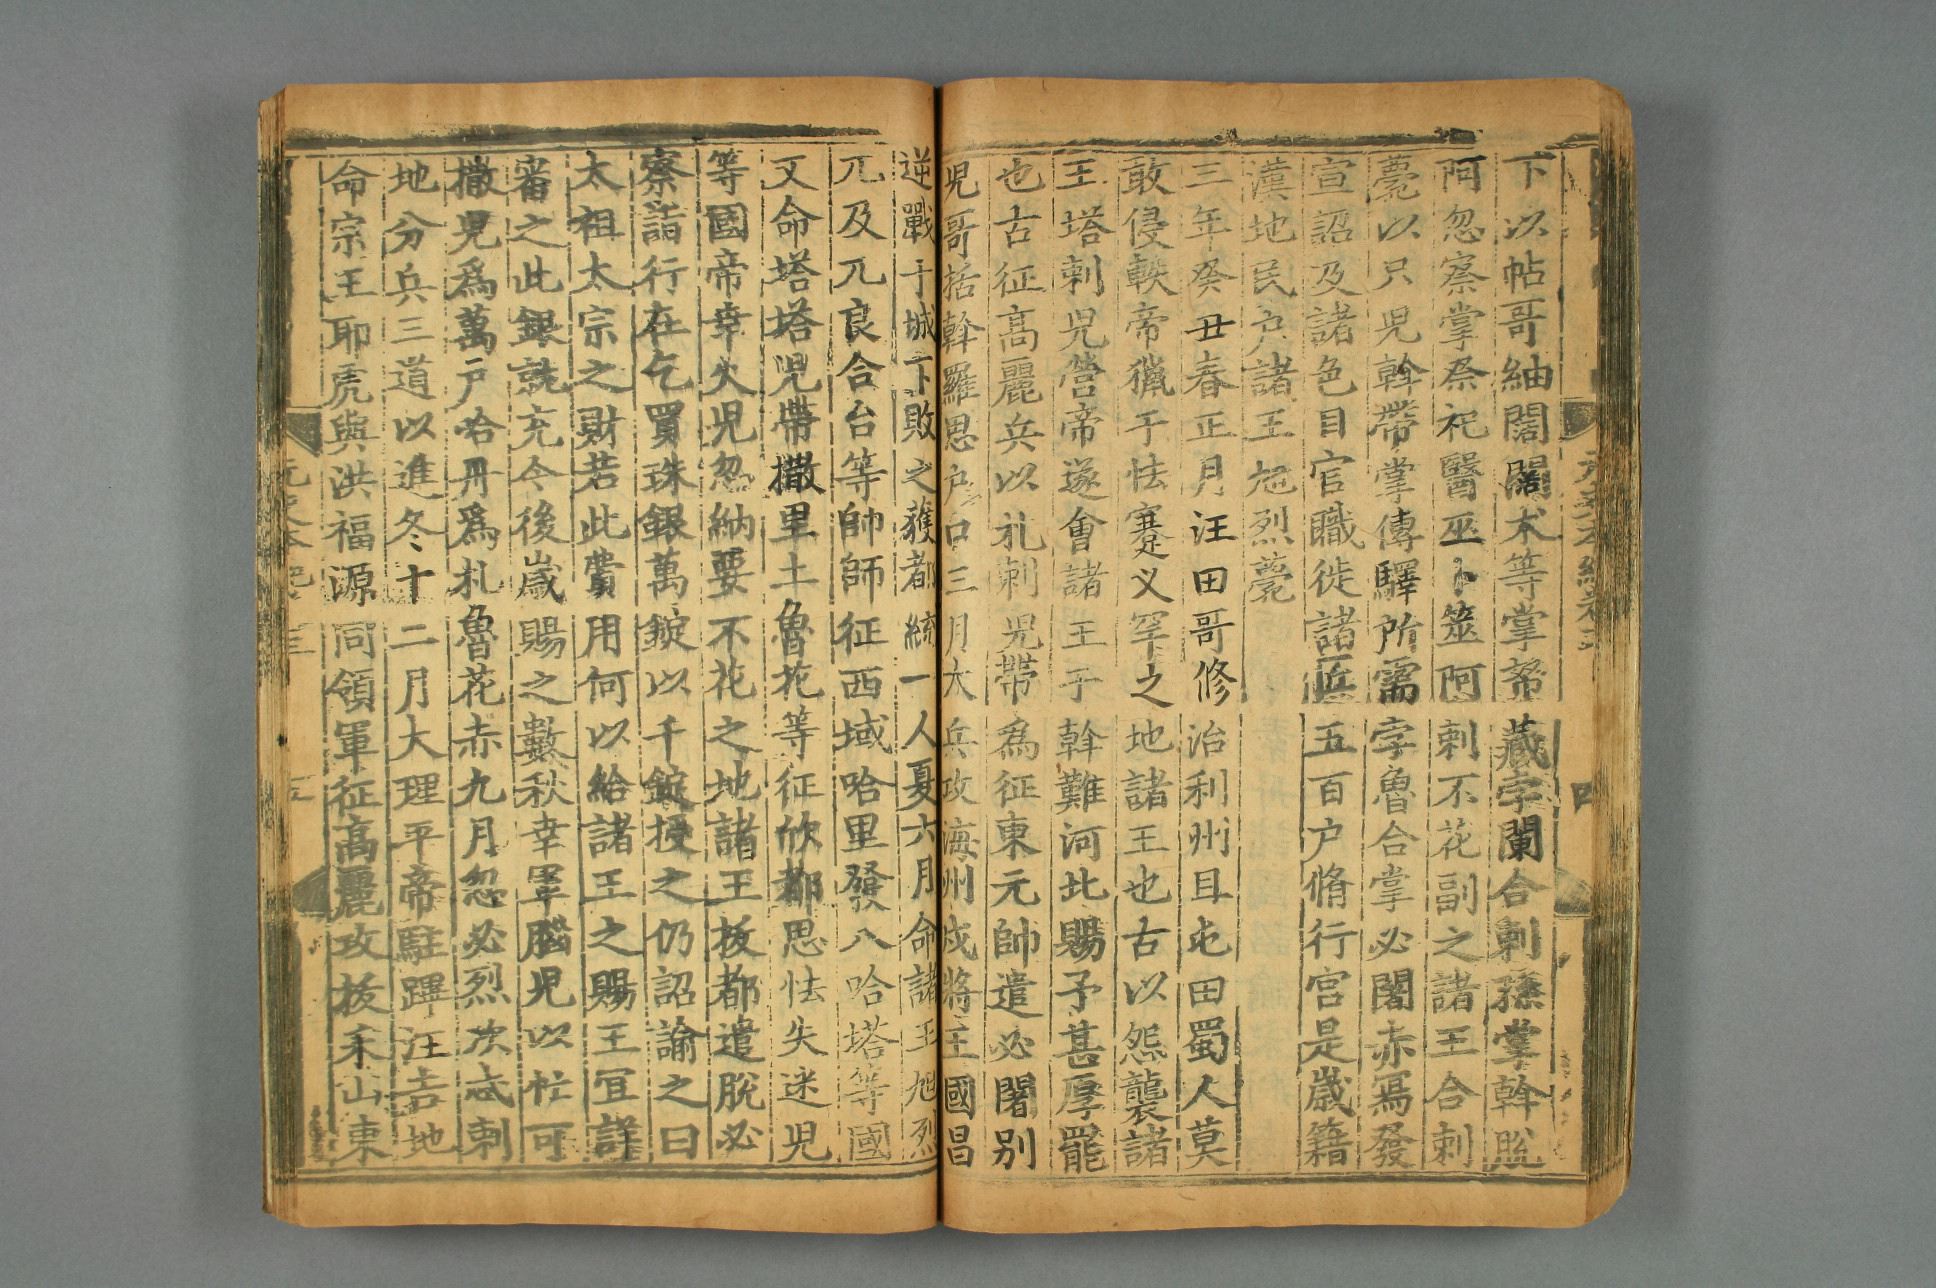 下以帖哥紬闊闊朮等掌帑藏孛闌合剌孫掌斡脫
阿忽察掌祭祀醫巫卜筮阿剌不花副之諸王合剌
薨以只兒斡帶掌傳驛所需孛魯合掌必闍赤寫發
宣詔及諸色目官職徙諸匠五百户脩行宮是歲籍
漢地民户諸王旭烈薨
三年癸丑春正月汪田哥修治利州且屯田蜀人莫
敢侵軼帝獵于怯蹇义罕之地諸王也古以怨襲諸
王塔剌兒營帝遂會諸王于斡難河北賜予甚厚罷
也古征高麗兵以札剌兒帶為征東元帥遣必闍别
兒哥括斡羅思户口三月大兵攻海州戍將王國昌
逆戰于城下敗之獲都統一人夏六月命諸王旭烈
兀及兀良合台等帥師征西域哈里發八哈塔等國
又命塔塔兒帶撒里土魯花等征欣都思怯失迷兒
等國帝幸火兒忽納要不花之地諸王拔都遣脫必
察詣行在乞買珠銀萬錠以千錠授之仍詔諭之曰
太祖太宗之財若此費用何以給諸王之賜王宜詳
審之此銀就充今後歲賜之數秋幸軍腦兒以忙可
撒兒為萬户哈丹為札魯花赤九月忽必烈次忒剌
地分兵三道以進冬十二月大理平帝駐蹕汪吉地
命宗王耶虎與洪福源同領軍征高麗攻拔禾山東